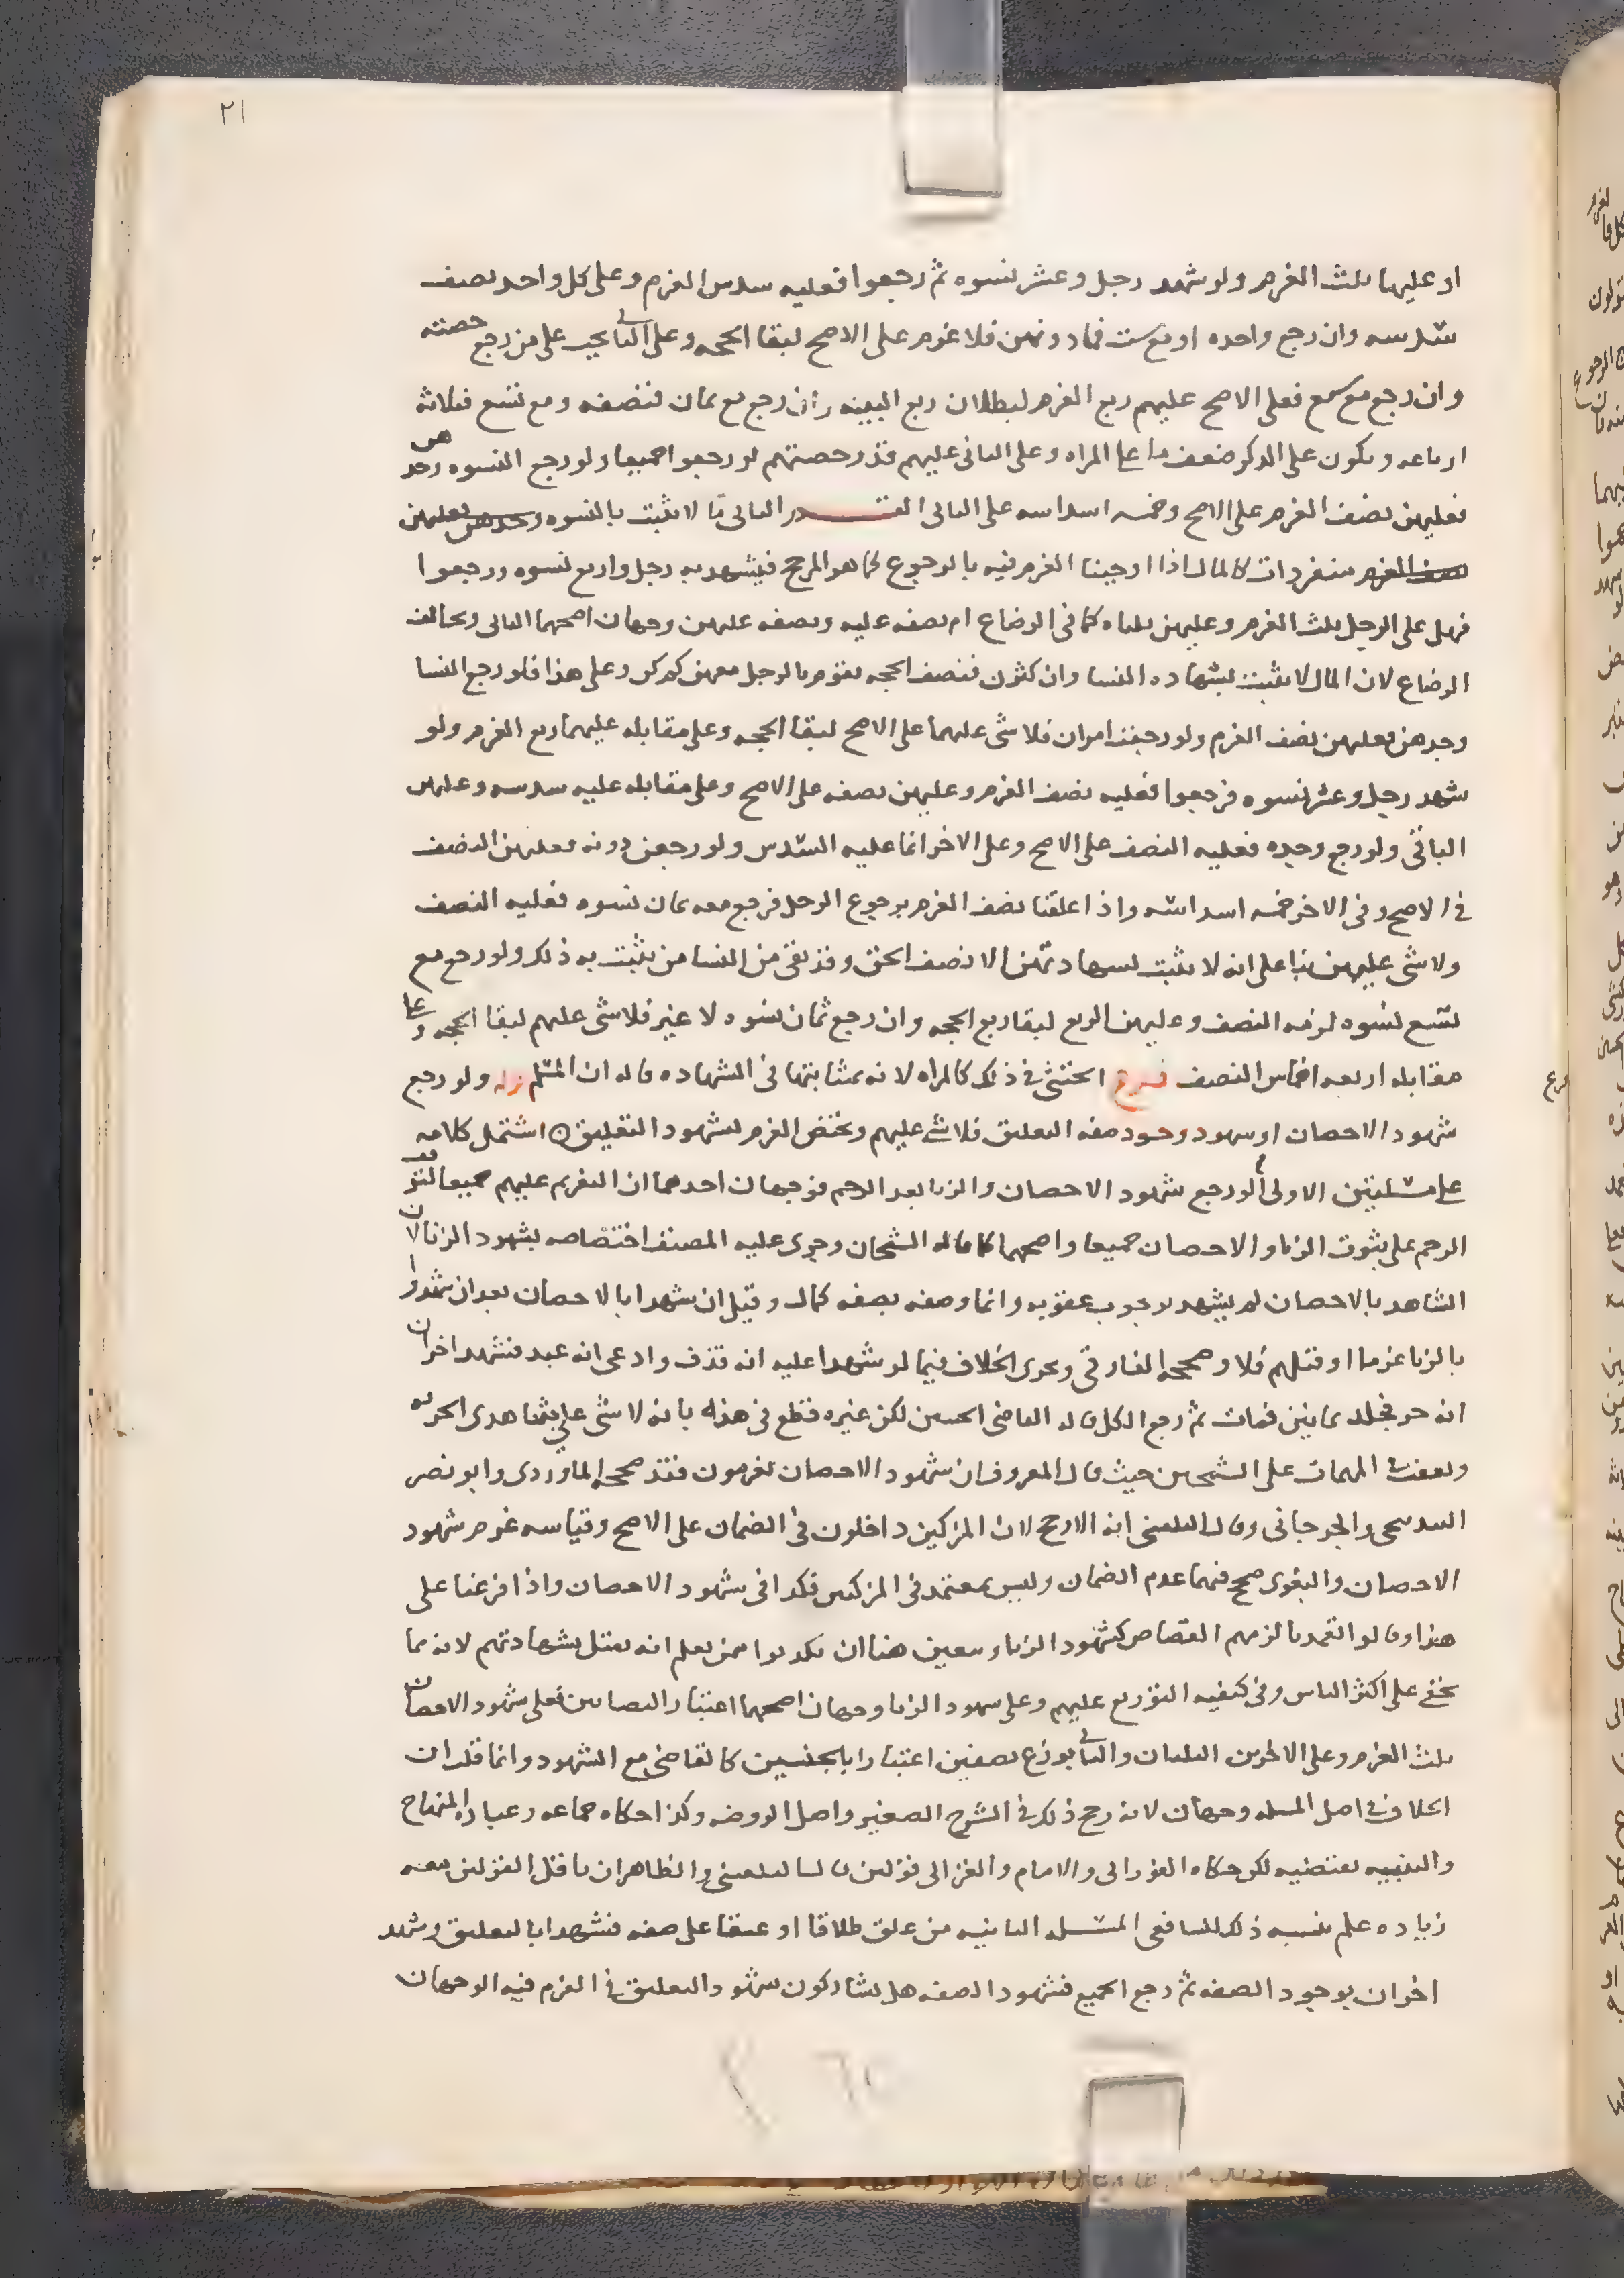 ٢١
او عليها ثلث الغرم ولو شهد رجل وعشر نسوه ثم رجعوا فعليه سدس الغرم وعلى كل واحد نصف
سدسه وان رجع واحده او مع ست فما دونهن فلا غرم على الاصح لبقا الحجه وعلى الثاني يجب على من رجع حصته
وان رجع مع سبع فعلى الاصح عليهم ربع الغرم لبطلان ربع البينه وان رجع مع ثمان فنصفه ومع تسع فثلاثه
ارباعه ويكون على الذكر ضعف ما على المراه وعلى الثاني عليهم قدر حصتهم لو رجعوا جميعا ولو رجع النسوه وحدهن
فعليهن نصف الغرم على الاصح وخمسه اسداسه على الثاني القدر الثاني ما لا يثبت بالنسوه وحدهن فعليهن
نصف الغرم منفردات كالمال اذا اوجبنا الغرم فيه بالرجوع كما هو المرجح فيشهد به رجل واربع نسوه ورجعوا
فهل على الرجل ثلث الغرم وعليهن ثلثاه كما في الرضاع ام نصفه عليه ونصفه عليهن وجهان اصحهما الثاني ويخالف
الرضاع لان المال لا يثبت بشهاده النسا وان كثرن فنصف الحجه يقوم بالرجل معهن كم كن وعلى هذا فلو رجع النسا
وحدهن فعليهن نصف الغرم ولو رجعت امراتان فلا شى عليهما على الاصح لبقا الحجه وعلى مقابله عليهما ربع الغرم ولو
شهد رجل وعشر نسوه فرجعوا فعليه نصف الغرم وعليهن نصفه على الاصح وعلى مقابله عليه سدسه وعليهن
الباقي ولو رجع وحده فعليه النصف على الاصح وعلى الاخر انما عليه السدس ولو رجعن دونه فعليهن النصف
في الاصح وفي الاخر خمسه اسداسه واذا علقنا نصف الغرم برجوع الرجل فرجع معه ثمان نسوه فعليه النصف
ولا شى عليهن بنا على انه لا يثبت بشهادتهن الا نصف الحق وقد بقى من النسا من يثبت به ذلك ولو رجع مع
تسع نسوه لزمه النصف وعليهن الربع لبقا ربع الحجه وان رجع ثمان نسوه لا غير فلا شى عليهم لبقا الحجه وعلى
مقابله اربعه اخماس النصف فرع الخنثى في ذلك كالمراه لانه بمثابتها في الشهاده قاله ابن المسلم قوله ولو رجع
شهود الاحصان او شهود وجود صفه التعليق فلا شى عليهم ويختص الغرم بشهود التعليق اشتمل كلامه
على مسئلتين الاولى لو رجع شهود الاحصان والزنا بعد الرجم فوجهان احدهما ان التغريم عليهم جميعا لتوقف
الرجم على ثبوت الزنا والاحصان جميعا واصحهما كما قاله الشيخان وجرى عليه المصنف اختصاصه بشهود الزنا لان
الشاهد بالاحصان لم يشهد بوجوب عقوبه وانما وصفه بصفه كمال وقيل ان شهدا بالاحصان بعد ان شهدوا
بالزنا غرما او قبلهم فلا وصححه الفارقي ويجرى الخلاف فيما لو شهدا عليه انه قذف وادعى انه عبد فشهد اخران
انه حر فجلد ثمانين فمات ثم رجع الكل قاله القاضى الحسين لكن غيره قطع في هذه بانه لا شى على شاهدى الحريه
وتعقب في المهمات على الشيخين حيث قال المعروف ان شهود الاحصان يغرمون فقد صححه الماوردى وابو نصر
البندنيجى والجرجانى وقال البلقينى انه الارجح لان المزكين داخلون في الضمان على الاصح وقياسه غرم شهود
الاحصان والبغوى صحح فيهما عدم الضمان وليس بمعتمد في المزكين فكذا في شهود الاحصان واذا فرعنا على
هذا وقالوا تعمدنا لزمهم القصاص كشهود الزنا ويتعين هنا ان يكونوا ممن يعلم انه يقتل بشهادتهم لانه مما
يخفى على اكثر الناس وفى كيفيه التوزيع عليهم وعلى شهود الزنا وجهان اصحهما اعتبار النصابين فعلى شهود الاحصان
ثلث الغرم وعلى الاخرين الثلثان والثاني يوزع نصفين اعتبارا بالجنسين كالقاضى مع الشهود وانما قلت ان
الخلاف في اصل المسله وجهان لانه رجح ذلك في الشرح الصغير واصل الروضه وكذا حكاه جماعه وعباره المنهاج
والتنبيه تقتضيه لكن حكاه الفورانى والامام والغزالى قولين قال البلقينى والظاهر ان ناقل القولين معه
زياده علم بنسبه ذلك للشافعى المسله الثانيه من علق طلاقا او عتقا على صفه فشهدا بالتعليق وشهد
اخران بوجود الصفه ثم رجع الجميع فشهود الصفه هل يشاركون شهود التعليق في الغرم فيه الوجهان
فرع